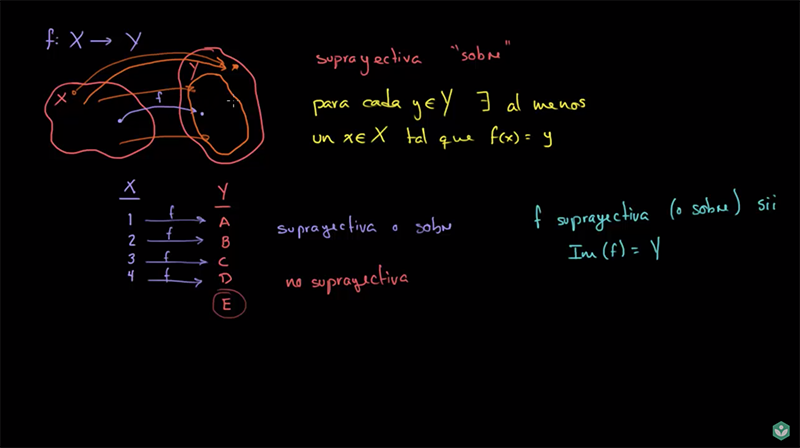 f: X → Y
suprayectiva "sobre"
Y
X
f
para cada y ∈ Y ∃ al menos
un x ∈ X tal que f(x) = y
X Y
1 f A
2 f B
3 f C
4 f D
E
suprayectiva o sobre
no suprayectiva
f suprayectiva (o sobre) sii
Im (f) = Y